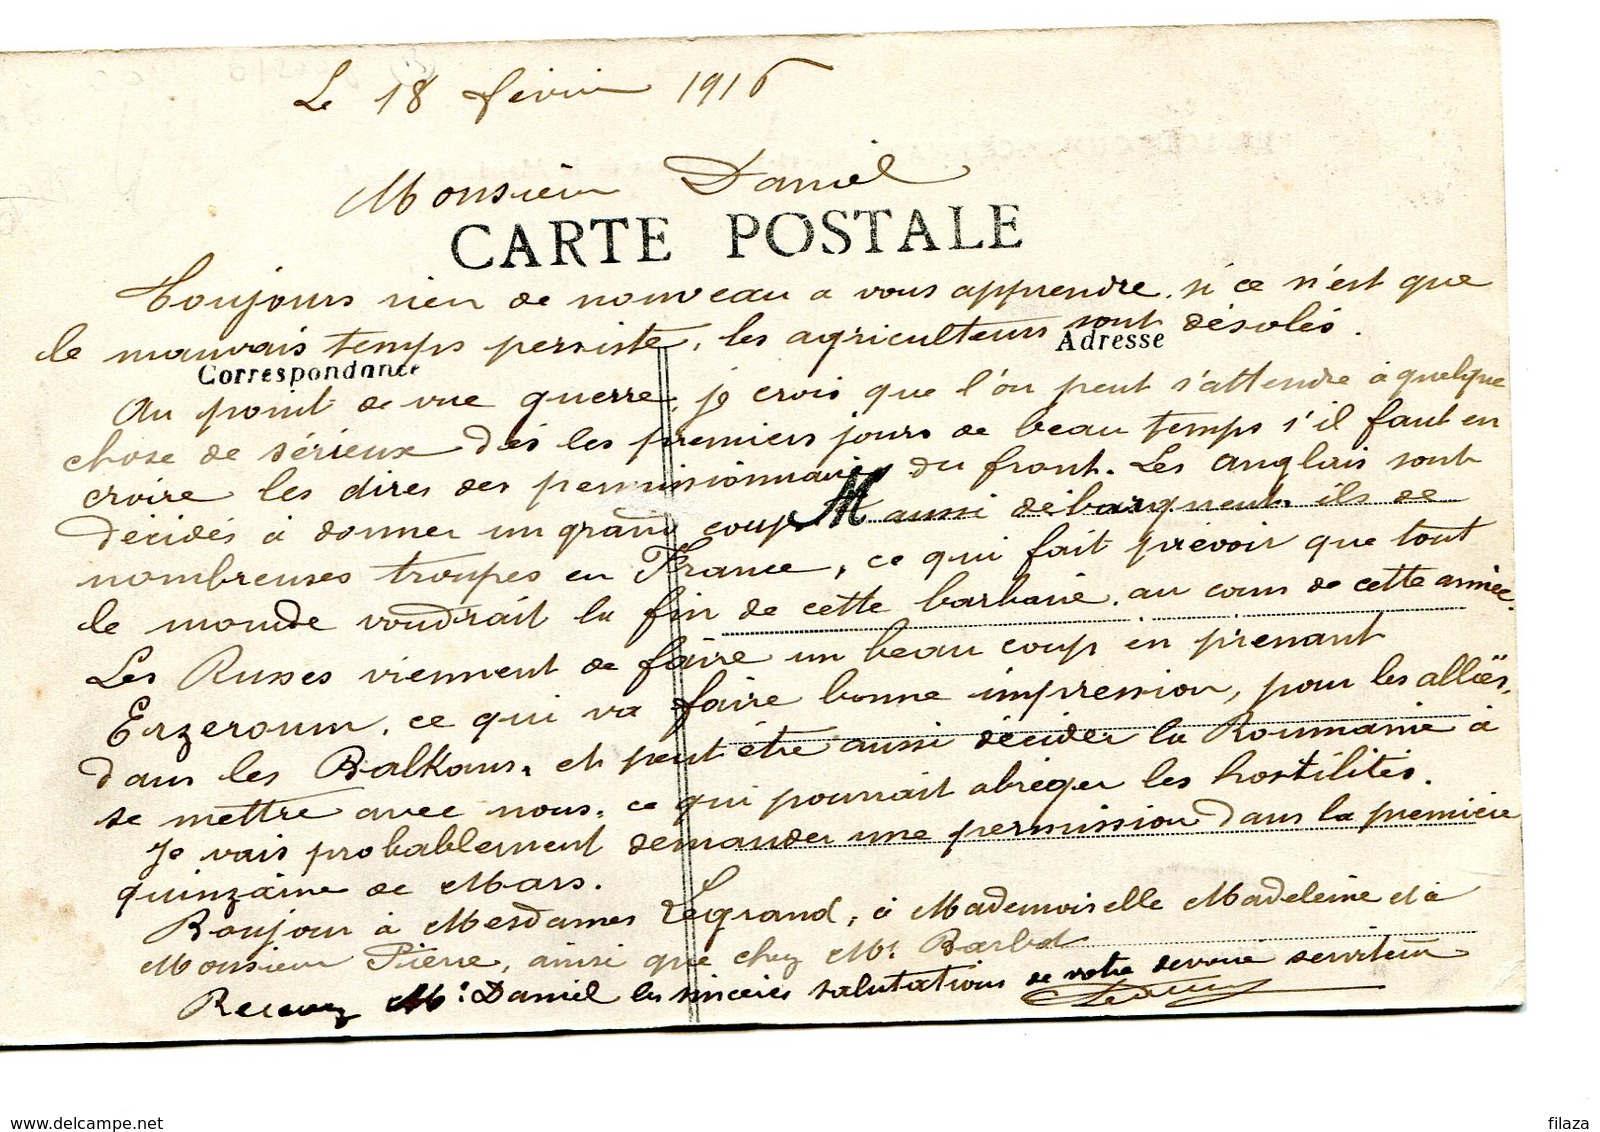 Le 18 février 1916
Monsieur Daniel
CARTE POSTALE
Toujours rien de nouveau a vous apprendre, si ce n'est que
le mauvais temps persiste, les agriculteurs sont désolés.
Adresse
Correspondance
Au point de vue guerre, je crois que l'on peut s'attendre à quelque
chose de sérieux dès les premiers jours de beau temps s'il faut en
croire les dires des permissionnaires du front. Les anglais sont
décidés à donner un grand coup M aussi débarquent ils de
nombreuses troupes en France, ce qui fait prévoir que tout
le monde voudrait la fin de cette barbarie. au cours de cette année.
Les Russes viennent de faire un beau coup en prenant
Erzeroum, ce qui va faire bonne impression, pour les alliës,
dans les Balkans, et peut être aussi décider la Roumanie à
se mettre avec nous, ce qui pourrait abréger les hostilités.
Je vais probablement demander une permission dans la première
quinzaine de Mars.
Bonjour à Mesdames Legrand, à Mademoiselle Madeleine et à
Monsieur Pierre, ainsi que chez Mr Barbot
Recevez Mr Daniel les sincères salutations de votre dévoué serviteur
delcampe.net
filaza